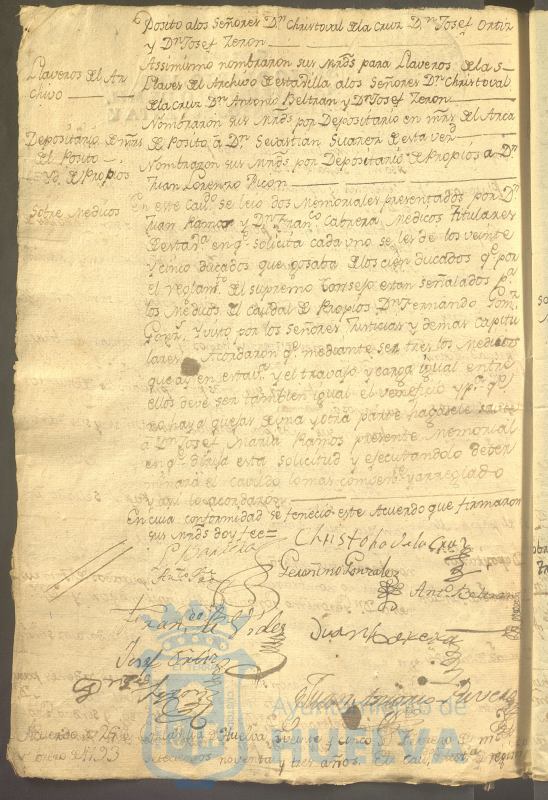 Posito a los Señores Dn. Christoval de la Cruz Dn. Josef Ortiz
y Dn. Josef Zeron
Llaveros del Ar
chivo
Assimismo nombraron sus Mrds para Llaveros de las
Llaves del Archivo de esta Villa a los Señores Dn. Christoval
de la Cruz Dn. Antonio Beltran y Dn. Josef Zeron
Depositario de mrs
del Posito
Nombraron sus Mrds por Depositario en mrs del Arca
de Posito a Dn. Sevastian Suarez de esta vecd
Yd. de Propios
Nombraron sus Mrds por Depositario de Propios a Dn.
Juan Lorenzo
Sobre Medicos
En este Cavdo se leio dos Memoriales presentados por Dn.
Juan Ramos y Dn. Franco Cabrera Medicos titulares
de esta va en qe solicita cada uno se les de los veinte
y cinco ducados que gosaba de los cien ducados qe por
el reglamto del supremo Consejo estan señalados pa
los Medicos del caudal de Propios Dn. Fernando
y visto por los Señores Justicias y demas capitu
lares Acordaron qe mediante ser tres los Medicos
que ay en esta va y el travajo y carga igual entre
ellos deve ser tambien igual el veneficio y pa qe
no haya quejas de una y otra parte hagasele saver
a Dn. Josef Maria Ramos presente Memorial
en qe dirija esta solicitud y ejecutandolo deter
minara el cavildo lo mas combente y arreglado
y asi lo acordaron
En cuia conformidad se fenecio este Acuerdo que firmaron
sus Mrds doy fee=
Christoval de la Cruz
Geronimo Gonzalez
Anto Beltran
Franco
Juan
Josef Ortiz
Zeron
Juan Antonio
Ayuntamiento de
HUELVA
Acuerdo de 25 de
Enero de 1793
En la Villa de Huelva, en veinte y cinco de Enero de mil
setecientos noventa y tres años